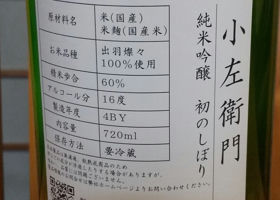 小左衛門
純米吟醸 初のしぼり
原材料名 米(国産)
米麹(国産米)
お米品種 出羽燦々
100%使用
精米歩合 60%
アルコール分 16度
製造年度 4BY
内容量 720ml
保存方法 要冷蔵